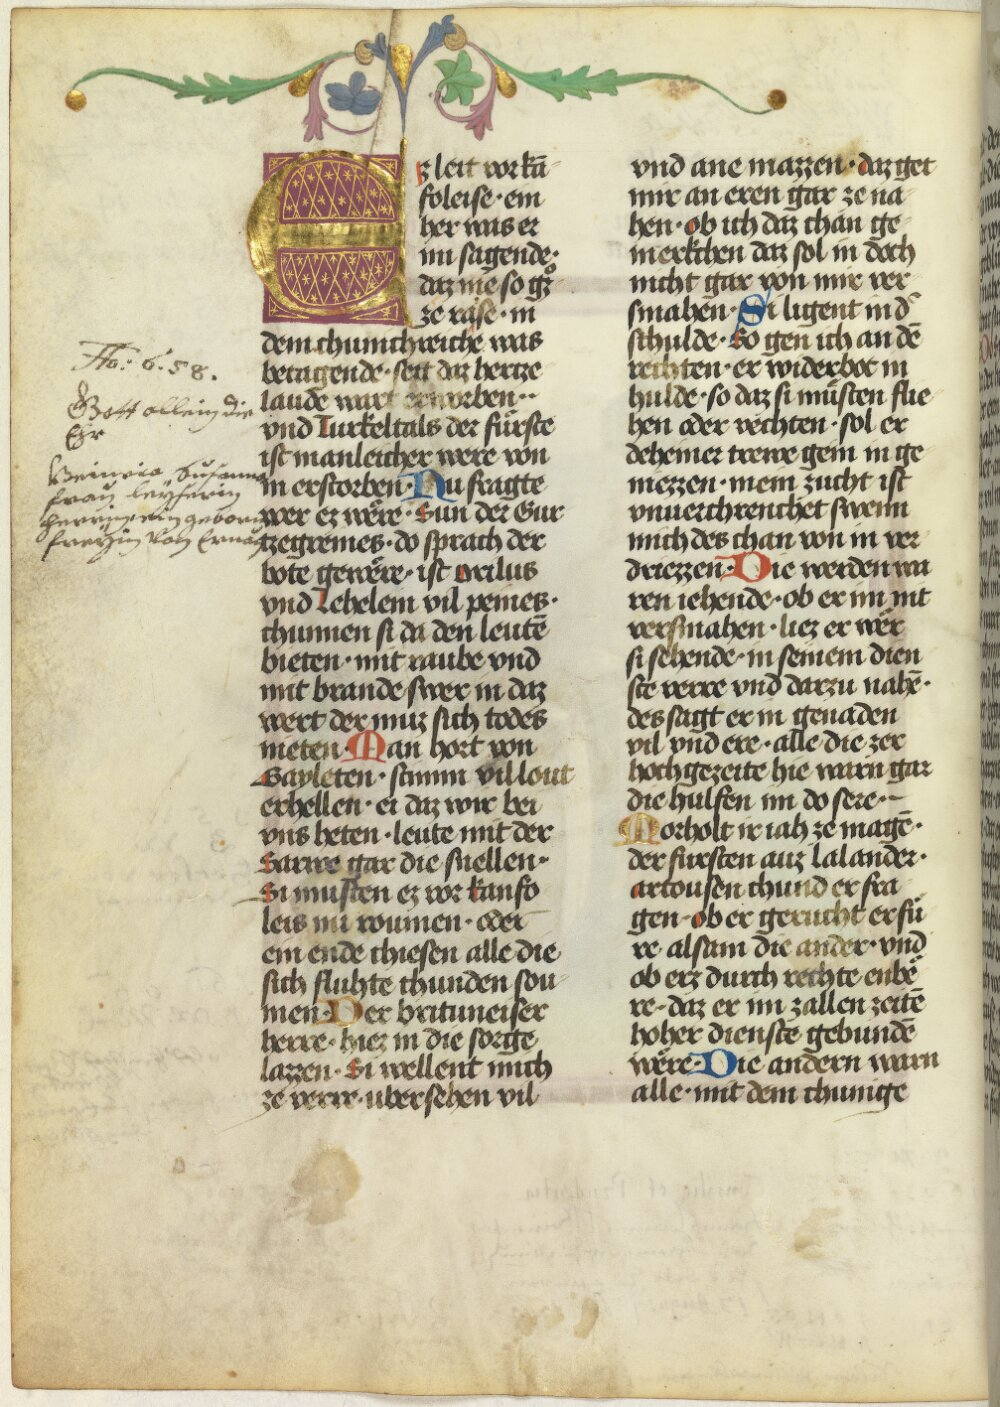 Ez leit vor kā
foleise · ein
her was er
im sagende ·
daz nie so gͦz
ze raise · in
dem chunichreiche was
betagende · seit daz hertze
laude wart erworben ··
vnd Turkeltals der fürste
ist manleicher were von
in erstorben · Nu fragte
wer ez wëre · Sun der Gur
tzegremes · do sprach der
bote gewëre · ist orilus
vnd Lehelein vil peines ·
chunnen si da den leutē
bieten · mit raube vnd
mit brande swer in daz
wert der muz sich todes
nieten · Man hort von
Gayleten · stimm vil lout
erhellen · ei daz wir bei
vns heten · leute mit der
Sarwe gar die snellen ·
Si musten ez vor kanfo
leis nu roumen · oder
ein ende chiesen alle die
sich fluhte chunden sou
men · Der brituneiser
herre · hiez in die sorge
lazzen · Si wellent mich
ze verre · ubersehen vil
vnd ane mazzen · daz get
mir an eren gar ze na
hen · ob ich daz chan ge
merkchen daz sol in doch
nicht gar von mir ver
smahen · Si ligent in d̄
schulde · So gen ich an dē
rechten · er widerbot in
hulde · so daz si müsten flie
hen oder vechten · sol er
deheiner trewe gein in ge
niezzen · mein zucht ist
vnuerchrenchet swenn
mich des chan von in ver
driezzen · Die werden wa
ren iehende · ob er im nit
versmahen · liez er wër
si sehende · in seinem dien
ste verre vnd darzu nahē ·
des sagt er in genaden
vil vnd ere · alle die zer
hochgezeite hie warn gar
die hulfen im do sere ·
Morholt ir iah ze magē ·
der fursten auz lalander ·
artousen chund er fra
gen · ob er gerucht er fü
re alsam die ander · vnd
ob erz durch rechte enbë
re · daz er im zallen zeitē
hoher dienste gebundē
wëre · Die andern warn
alle · mit dem chunige
Ao: 6.58.
Gott allein die
Ehr
Susanna
frau
herrin ein geborne
freyin von